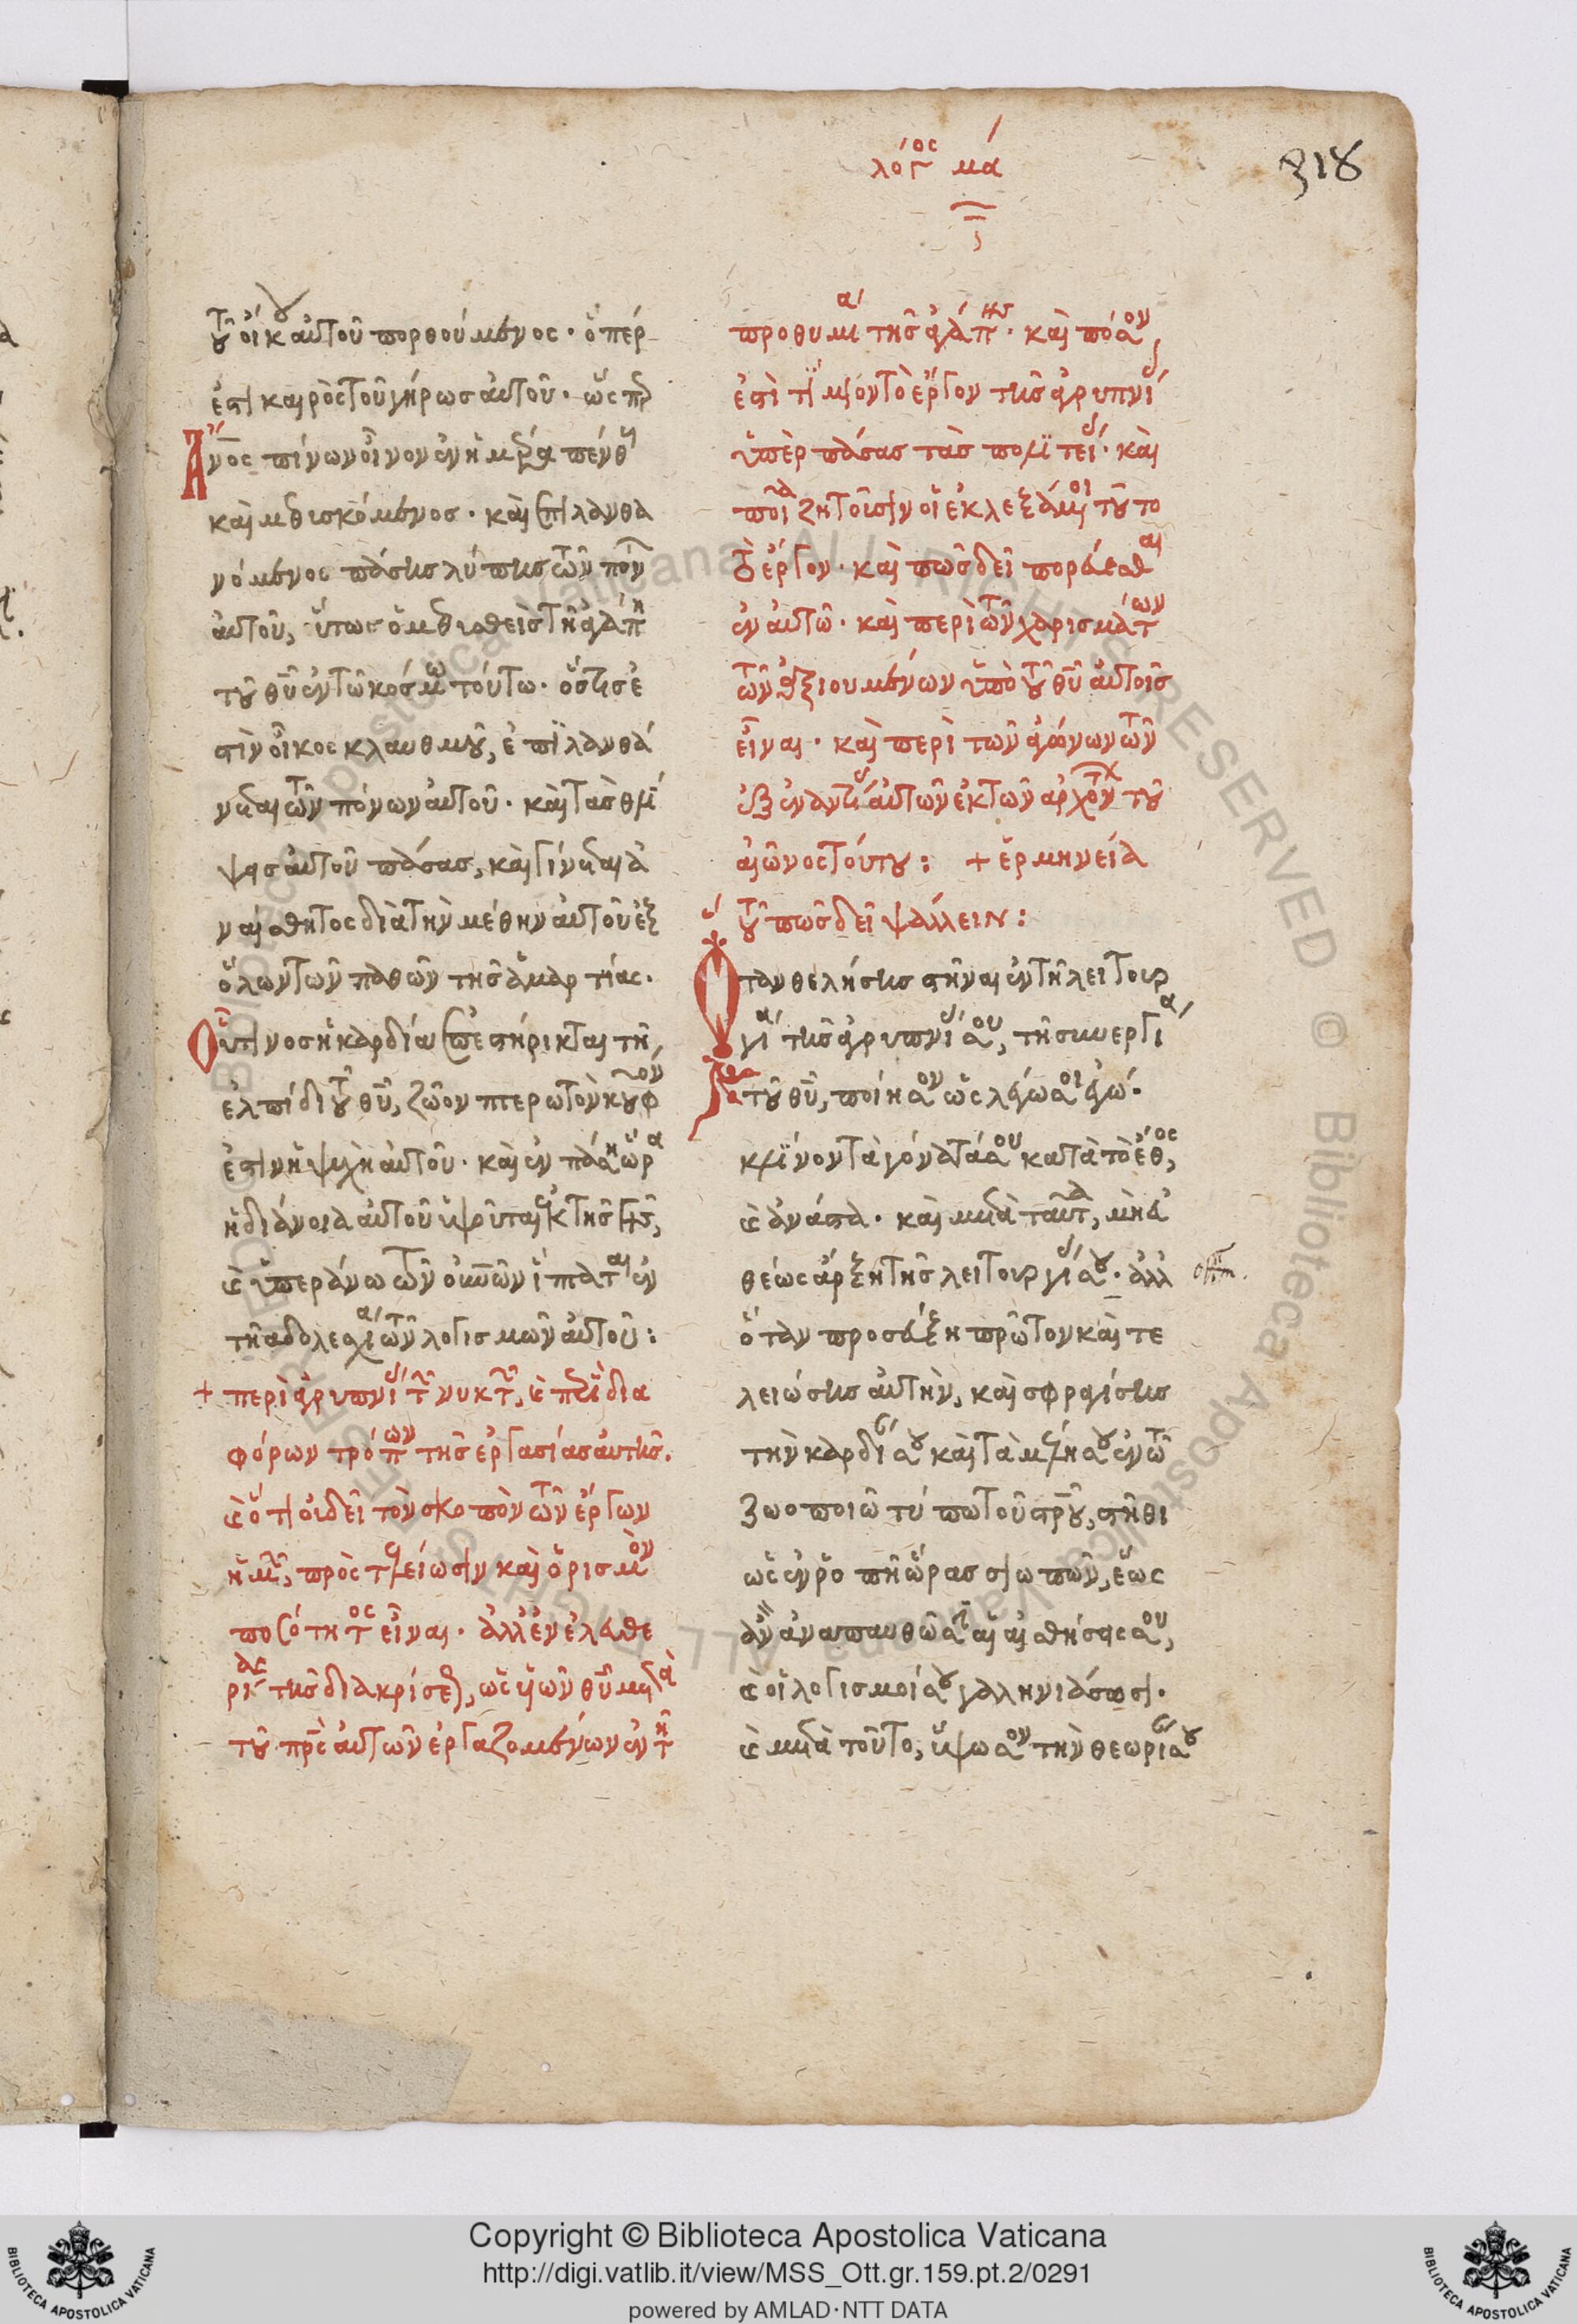 λόγος μα
318
τοῦ οἴκου αὐτοῦ πορθούμενος· ὅπερ
ἐστὶ καιρὸς τοῦ γήρως αὐτοῦ· ὥσπερ
ἄνος πίνων οἶνον ἐν ἡμέρα πένθους
καὶ μεθισκόμενος· καὶ ἐπιλανθα
νόμενος πάσης λύπης τῶν πόνων
αὐτοῦ, οὕτως ὁ μεθυσθεὶς τῆ ἀγάπη
τοῦ θῦ ἐν τῶ κόσμω τούτω· ὅστις ἐ
στὶν οἶκος κλαυθμοῦ, ἐπϊλανθά
νεται τῶν πόνων αὐτοῦ· καὶ τὰς θλί
ψεις αὐτοῦ πάσας, καὶ γίνεται ἀ
ναίσθητος διὰ τὴν μέθην αὐτοῦ ἐξ
ὅλων τῶν παθῶν τῆς ἁμαρτίας.
Οὗτινος ἡ καρδία ἐπεστήρικται τῆ
ἐλπίδι τοῦ θῦ, ζῶον πτερωτὸν κοῦφον
ἐστὶν ἡ ψυχὴ αὐτοῦ· καὶ ἐν πάση ὥρα
ἡ διάνοια αὐτοῦ ὑψοῦται ἐκ τῆς γῆς,
καὶ ὑπεράνω τῶν οὐνῶν ἵπταται ἐν
τῆ ἀδολεσχία τῶν λογισμῶν αὐτοῦ:
+ περὶ ἀγρυπνίας τῶν νυκτῶν, καὶ περὶ δια
φόρων τρόπων τῆς ἐργασίας αὐτῆς.
καὶ ὅτι οὐ δεῖ τὸν σκοπὸν τῶν ἔργων
ἡμῶν, πρὸς τελείωσιν καὶ ὁρισμὸν
ποσότητος εἶναι· ἀλλ' ἐν ἐλευθε
ρίας τῆς διακρίσεως, ὡς υἱῶν θῦ μετὰ
τοῦ πρς αὐτῶν ἐργαζομένων ἐν τῆ
προθυμία τῆς ἀγάπης· καὶ πόσον
ἐστὶ τίμιον τὸ ἔργον τῆς ἀγρυπνίας
ὑπὲρ πάσας τὰς πολϊτείας· καὶ
ποῖα ζητοῦσιν οἱ ἐκλεξάμενοι τοῦτο
τὸ ἔργον· καὶ πῶς δεῖ πορεύεσθαι
ἐν αὐτῶ· καὶ περὶ τῶν χαρισμάτων
τῶν ἀξιουμένων ὑπὸ τοῦ θῦ αὐτοῖς
εἶναι· καὶ περὶ τῶν ἀγώνων τῶν
ἐξ ἐναντίας αὐτῶν ἐκ τῶν ἀρχόντων τοῦ
αἰῶνος τούτου: + ἑρμηνεία
τοῦ πῶς δεῖ ψάλλειν:
Ὅταν θελήσης στῆναι ἐν τῆ λειτουρ
γία τῆς ἀγρυπνίας σου, τῆ συνεργία
τοῦ θῦ, ποίησον ὥς λέγω σοι ἐγώ·
κλϊνον τὰ γόνατά σου κατὰ τὸ ἔθος,
καὶ ἀνάστα· καὶ μετὰ ταῦτα, μὴ εὐ
θέως ἄρξη τῆς λειτουργίας σου· ἀλλ
ὅταν προσεύξη πρῶτον καὶ τε
λειώσης αὐτὴν, καὶ σφραγίσης
τὴν καρδίαν σου καὶ τὰ μέλη σου ἐν τῶ
ζωοποιῶ τύπω τοῦ στροῦ, στῆθι
ὡς ἐν ῥοπῆ ὥρας σιωπῶν, ἕως
ἂν ἀναπαυθῶσιν αἱ αἰσθήσεις σου,
καὶ οἱ λογισμοί σου γαληνιάσωσι·
καὶ μετὰ τοῦτο, ὕψωσον τὴν θεωρίαν σου
Copyright © Biblioteca Apostolica Vaticana
http://digi.vatlib.it/view/MSS_Ott.gr.159.pt.2/0291
powered by AMLAD·NTT DATA
BIBLIOTECA APOSTOLICA VATICANA
BIBLIOTECA APOSTOLICA VATICANA